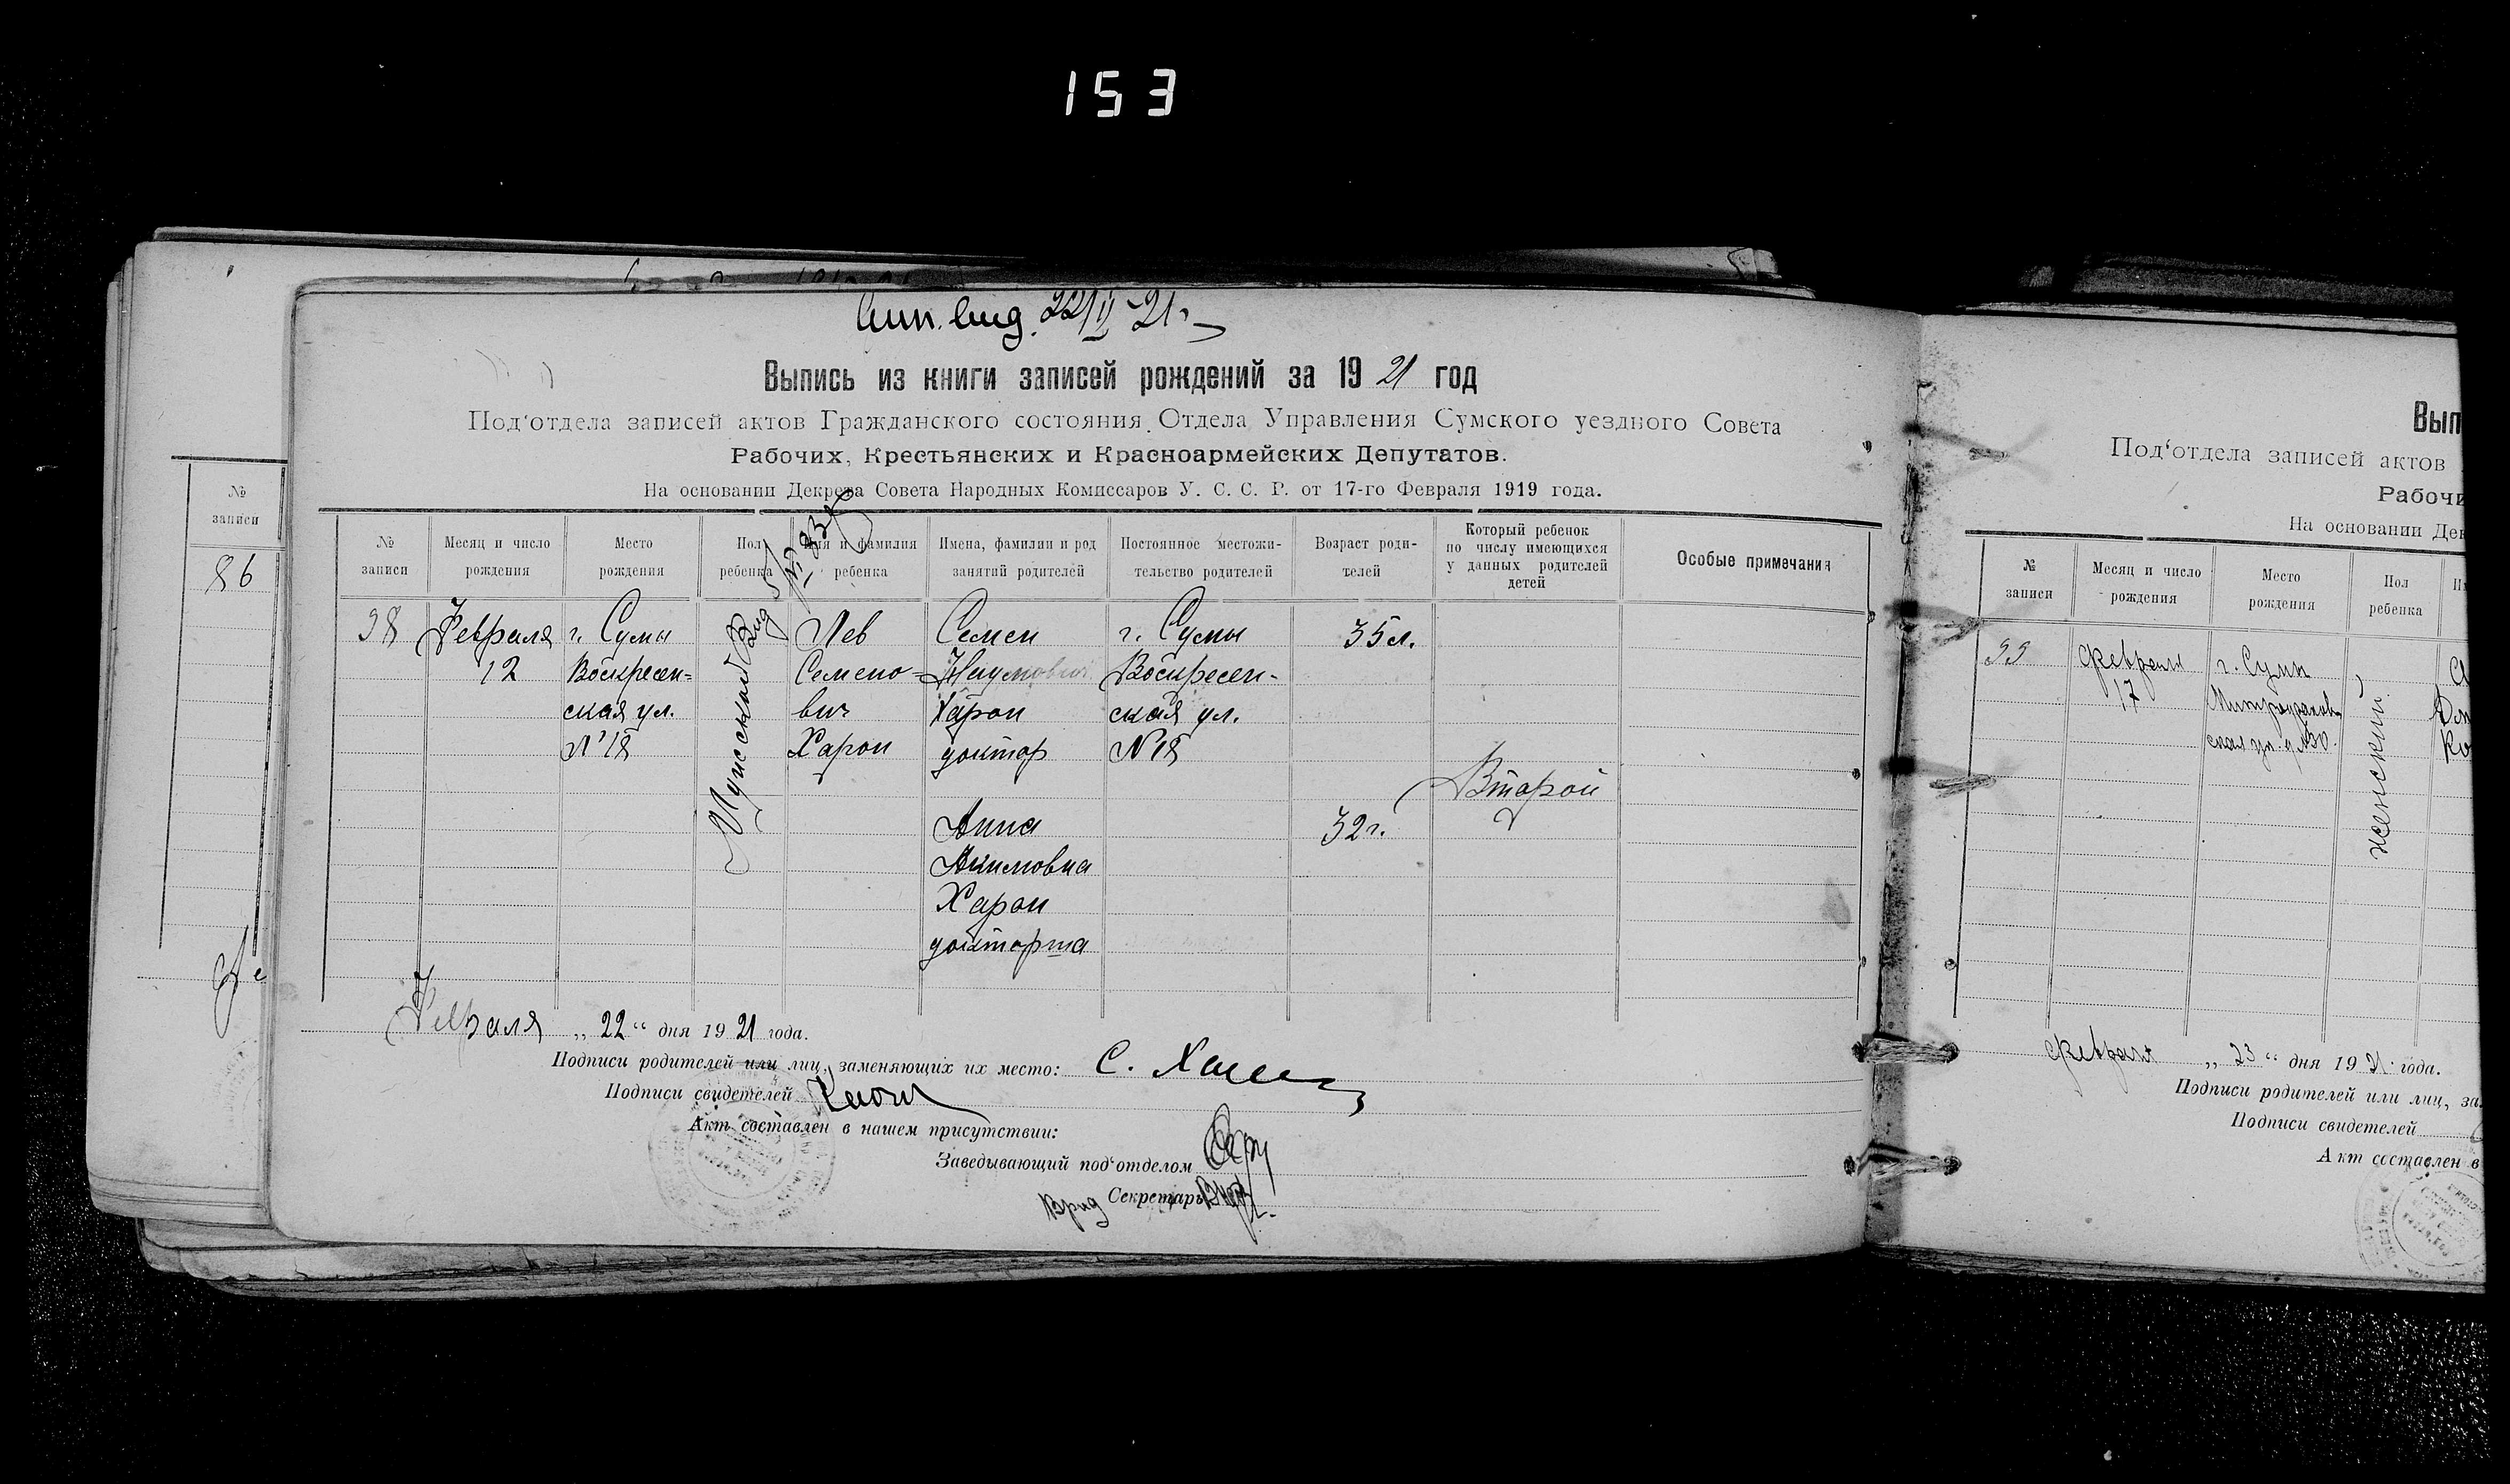 153
Вып. выд. 22/II-21 г.
Выпись из книги записей рождений за 1921 год
Под'отдела записей актов Гражданского состояния Отдела Управления Сумского уездного Совета
Рабочих, Крестьянских и Красноармейских Депутатов.
На основании Декрета Совета Народных Комиссаров У. С. С. Р. от 17-го Февраля 1919 года.
№ записи
Месяц и число рождения
Место рождения
Пол ребенка
Имя и фамилия ребенка
Имена, фамилии и род занятий родителей
Постоянное местожительство родителей
Возраст родителей
Который ребенок по числу имеющихся у данных родителей детей
Особые примечания
98
Февраля
12
г. Сумы
Воскресен-
ская ул.
№ 18
Мужской
Вид
Лев
Семено-
вич
Харон
Семен
Наумович
Харон
доктор
г. Сумы
Воскресен-
ская ул.
N 18
35 л.
Анна
Акимовна
Харон
докторша
32 г.
Второй
Февраля „22“ дня 1921 года.
Подписи родителей или лиц, заменяющих их место: С.
Подписи свидетелей
Акт составлен в нашем присутствии:
Заведывающий под'отделом
Врид Секретарь
№
записи
86
Вып
Под'отдела записей актов
Рабочи
На основании Дек
№
записи
Месяц и число
рождения
Место
рождения
Пол
ребенка
99
февраля
17
г. Сумы
женский
февраля „23“ дня 1921 года.
Подписи родителей или лиц, за
Подписи свидетелей
Акт составлен в